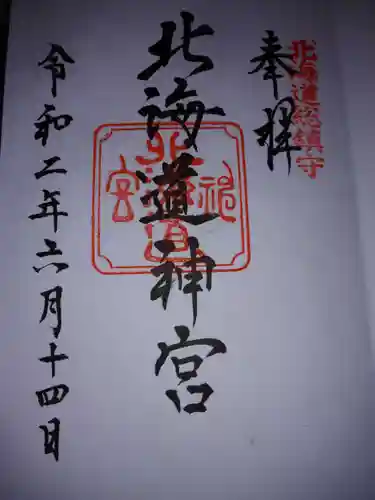 奉拝
北海道総鎮守
北海道神宮
令和二年六月十四日